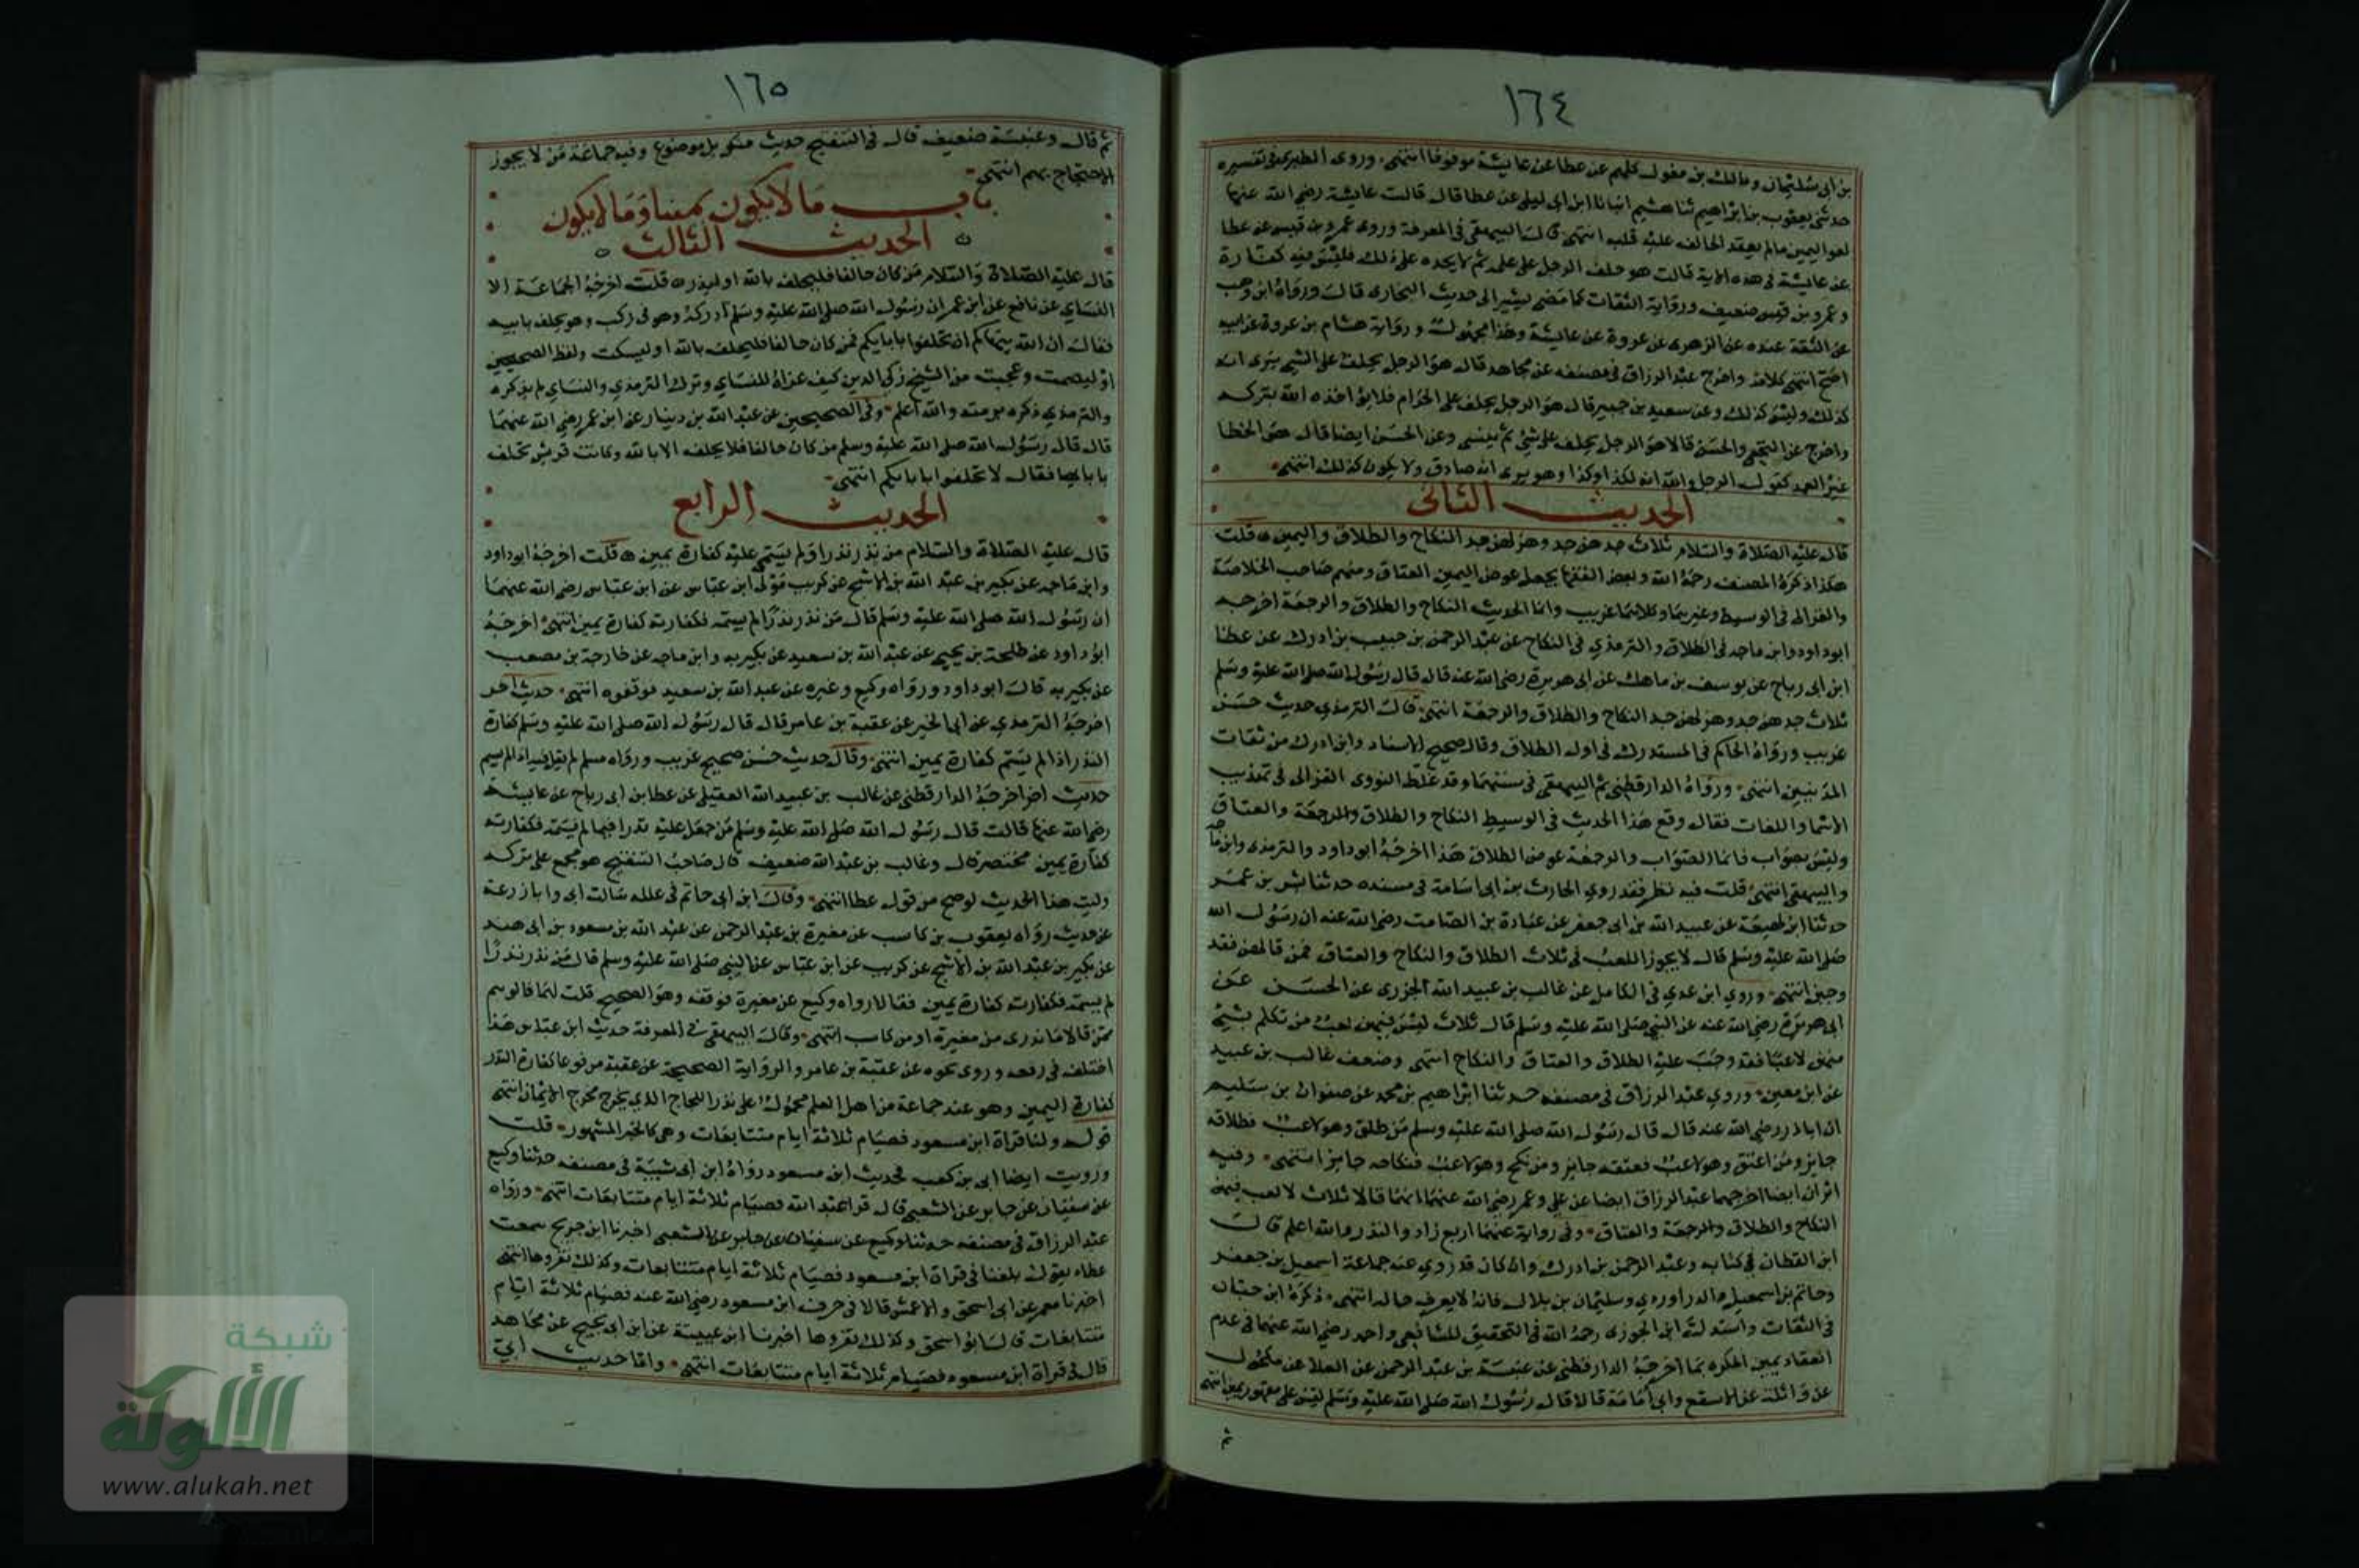 ١٦٤
بن ابى سليمان ومالك بن مغول كلهم عن عطا عن عايشة موقوفا انتهى وروى الطبرى فى تفسيره
حدثنى يعقوب بن ابراهيم ثنا هشيم انبانا ابن ابى ليلى عن عطا قال قالت عايشة رضى الله عنها
لغو اليمين مالم يعقد الحالف عليه قلبه انتهى قال البيهقى فى المعرفة وروى عمرو بن قيس عن عطا
عن عايشة فى هذه الاية قالت هو حلف الرجل على علمه ثم لا يجده على ذلك فليس فيه كفارة
وعمرو بن قيس ضعيف ورواية الثقات كما مضى يشير الى حديث البخارى قال ورواه ابن وهب
عن الثقة عنده عن الزهرى عن عروة عن عايشة وهذا مجهول ورواية هشام بن عروة عن ابيه
اصح انتهى كلامه واخرج عبد الرزاق فى مصنفه عن مجاهد قال هو الرجل يحلف على الشى يرى انه
كذلك وليس كذلك وعن سعيد بن جبير قال هو الرجل يحلف على الحرام فلا يؤاخذه الله بتركه
واخرج عن النخعى والحسن قالا هو الرجل يحلف على شى ثم ينسى وعن الحسن ايضا قال هو الخطا
غير العمد كقول الرجل والله انه لكذا وكذا وهو يرى انه صادق ولا يكون كذلك انتهى
الحديث الثانى
قال عليه الصلاة والسلام ثلاث جدهن جد وهزلهن جد النكاح والطلاق واليمين قلت
هكذا ذكره المصنف رحمه الله وبعض الفقها يجعل عوض اليمين العتاق ومنهم صاحب الخلاصة
والغزالى فى الوسيط وغيرهما وكلاهما غريب وانما الحديث النكاح والطلاق والرجعة اخرجه
ابو داود وابن ماجه فى الطلاق والترمذي فى النكاح عن عبد الرحمن بن حبيب بن ادرك عن عطا
ابن ابى رباح عن يوسف بن ماهك عن ابى هريرة رضى الله عنه قال قال رسول الله صلى الله عليه وسلم
ثلاث جدهن جد وهزلهن جد النكاح والطلاق والرجعة انتهى قال الترمذي حديث حسن
غريب ورواه الحاكم فى المستدرك فى اول الطلاق وقال صحيح الاسناد وابن ادرك من ثقات
المدنيين انتهى ورواه الدارقطنى ثم البيهقى فى سننهما وقد غلط النووى الغزالى فى تهذيب
الاسما واللغات فقال وقع هذا الحديث فى الوسيط النكاح والطلاق والرجعة والعتاق
وليس بصواب فانما الصواب والرجعة عوض الطلاق هذا اخرجه ابو داود والترمذى وابن ماجه
والبيهقى انتهى قلت فيه نظر فقد روي الحارث بن ابى اسامة فى مسنده حدثنا بشر بن عمر
حدثنا ابن لهيعة عن عبيد الله بن ابى جعفر عن عبادة بن الصامت رضى الله عنه ان رسول الله
صلى الله عليه وسلم قال لا يجوز اللعب فى ثلاث الطلاق والنكاح والعتاق فمن قالهن فقد
وجبن انتهى وروي ابن عدي فى الكامل عن غالب بن عبيد الله الجزرى عن الحسن عن
ابى هريرة رضى الله عنه عن النبى صلى الله عليه وسلم قال ثلاث ليس فيهن لعب من تكلم بشى
منهن لاعبا فقد وجب عليه الطلاق والعتاق والنكاح انتهى وضعف غالب بن عبيد
عن ابن معين وروي عبد الرزاق فى مصنفه حدثنا ابراهيم بن محمد عن صفوان بن سليم
ان ابا ذر رضى الله عنه قال قال رسول الله صلى الله عليه وسلم من طلق وهو لاعب فطلاقه
جايز ومن اعتق وهو لاعب فعتقه جايز ومن نكح وهو لاعب فنكاحه جايز انتهى وفيه
اثران ايضا اخرجهما عبد الرزاق ايضا عن على وعمر رضى الله عنهما انهما قالا ثلاث لا لعب فيهن
النكاح والطلاق والرجعة والعتاق وفى رواية عنهما اربع زاد والنذر والله اعلم قال
ابن القطان فى كتابه وعبد الرحمن بن ادرك وان كان قد روي عنه جماعة اسمعيل بن جعفر
وحاتم بن اسمعيل والدراوردي وسليمان بن بلال فانه لا يعرف حاله انتهى ذكره ابن حبان
فى الثقات واستدل له ابن الجوزى رحمه الله فى التحقيق للشافعى واحمد رضى الله عنهما فى عدم
انعقاد يمين المكره بما اخرجه الدارقطنى عن عنبسة بن عبد الرحمن عن العلا عن مكحول
عن واثلة عن الاسقع وابى امامة قالا قال رسول الله صلى الله عليه وسلم ليس على مقهور يمين انتهى
ثم
١٦٥
ثم قال وعنبسة ضعيف قال فى التنقيح حديث منكر بل موضوع وفيه جماعة ممن لا يجوز
الاحتجاج بهم انتهى
باب ما لا يكون يمينا وما لا يكون
الحديث الثالث
قال عليه الصلاة والسلام من كان حالفا فليحلف بالله او ليذر قلت اخرجه الجماعة الا
النساي عن نافع عن ابن عمر ان رسول الله صلى الله عليه وسلم ادركه وهو فى ركب وهو يحلف بابيه
فقال ان الله ينهاكم ان تحلفوا بابايكم فمن كان حالفا فليحلف بالله او ليسكت ولفظ الصحيحين
او ليصمت وعجبت من الشيخ زكى الدين كيف عزاه للنساي وترك الترمذي والنساي لم يذكره
والترمذي ذكره برمته والله اعلم وفى الصحيحين عن عبد الله بن دينار عن ابن عمر رضى الله عنهما
قال قال رسول الله صلى الله عليه وسلم من كان حالفا فلا يحلف الا بالله وكانت قريش تحلف
بابايها فقال لا تحلفوا بابايكم انتهى
الحديث الرابع
قال عليه الصلاة والسلام من نذر نذرا ولم يسمه عليه كفارة يمين قلت اخرجه ابو داود
وابن ماجه عن بكير بن عبد الله بن الاشج عن كريب مولى ابن عباس عن ابن عباس رضى الله عنهما
ان رسول الله صلى الله عليه وسلم قال من نذر نذرا لم يسمه فكفارته كفارة يمين انتهى اخرجه
ابو داود عن طلحة بن يحيى عن عبد الله بن سعيد عن بكير به وابن ماجه عن خارجة بن مصعب
عن بكير به قال ابو داود ورواه وكيع وغيره عن عبد الله بن سعيد موقفوه انتهى حديث اخر
اخرجه الترمذي عن ابى الخير عن عقبة بن عامر قال قال رسول الله صلى الله عليه وسلم كفارة
النذر اذا لم يسم كفارة يمين انتهى وقال حديث حسن صحيح غريب ورواه مسلم لم يقل فيه اذا لم يسم
حديث اخر اخرجه الدارقطنى عن غالب بن عبيد الله العقيلى عن عطا بن ابى رباح عن عايشة
رضى الله عنها قالت قال رسول الله صلى الله عليه وسلم من جعل عليه نذرا فيما لم يسمه فكفارته
كفارة يمين مختصر قال وغالب بن عبد الله ضعيف قال صاحب التنقيح هو مجمع على تركه
وليت هذا الحديث لو صح من قول عطا انتهى وقال ابن ابى حاتم فى علله سالت ابى وابا زرعة
عن حديث رواه يعقوب بن كاسب عن مغيرة بن عبد الرحمن عن عبد الله بن مسعود بن ابى هند
عن بكير بن عبد الله بن الاشج عن كريب عن ابن عباس عن النبى صلى الله عليه وسلم قال من نذر نذرا
لم يسمه فكفارته كفارة يمين فقالا رواه وكيع عن مغيرة فوقفه وهو الصحيح قلت لهما فالوهم
ممن قالا ما ندرى من مغيرة او من كاسب انتهى وقال البيهقى فى المعرفة حديث ابن عباس هذا
اختلف فى رفعه وروى نحوه عن عقبة بن عامر والرواية الصحيحة عن عقبة مرفوعا كفارة النذر
كفارة اليمين وهو عند جماعة من اهل العلم محمول على نذر اللجاج الذي يخرج مخرج الايمان انتهى
قوله ولنا قراة ابن مسعود فصيام ثلاثة ايام متتابعات وهى كالخبر المشهور قلت
ورويت ايضا ابى بن كعب فحديث ابن مسعود رواه ابن ابى شيبة فى مصنفه حدثنا وكيع
عن سفيان عن جابر عن الشعبى قال قرا عبد الله فصيام ثلاثة ايام متتابعات انتهى ورواه
عبد الرزاق فى مصنفه حدثنا وكيع عن سفيان عن جابر عن الشعبى اخبرنا ابن جريج سمعت
عطاء يقول بلغنا فى قراة ابن مسعود فصيام ثلاثة ايام متتابعات وكذلك نقروها انتهى
اخبرنا معمر عن ابى اسحق والاعمش قالا فى حرف ابن مسعود رضى الله عنه فصيام ثلاثة ايام
متتابعات قال ابو اسحق وكذلك نقروها اخبرنا ابن عيينة عن ابن ابى نجيح عن مجاهد
قال فى قراة ابن مسعود فصيام ثلاثة ايام متتابعات انتهى واما حديث ابي
شبكة
الألوكة
www.alukah.net